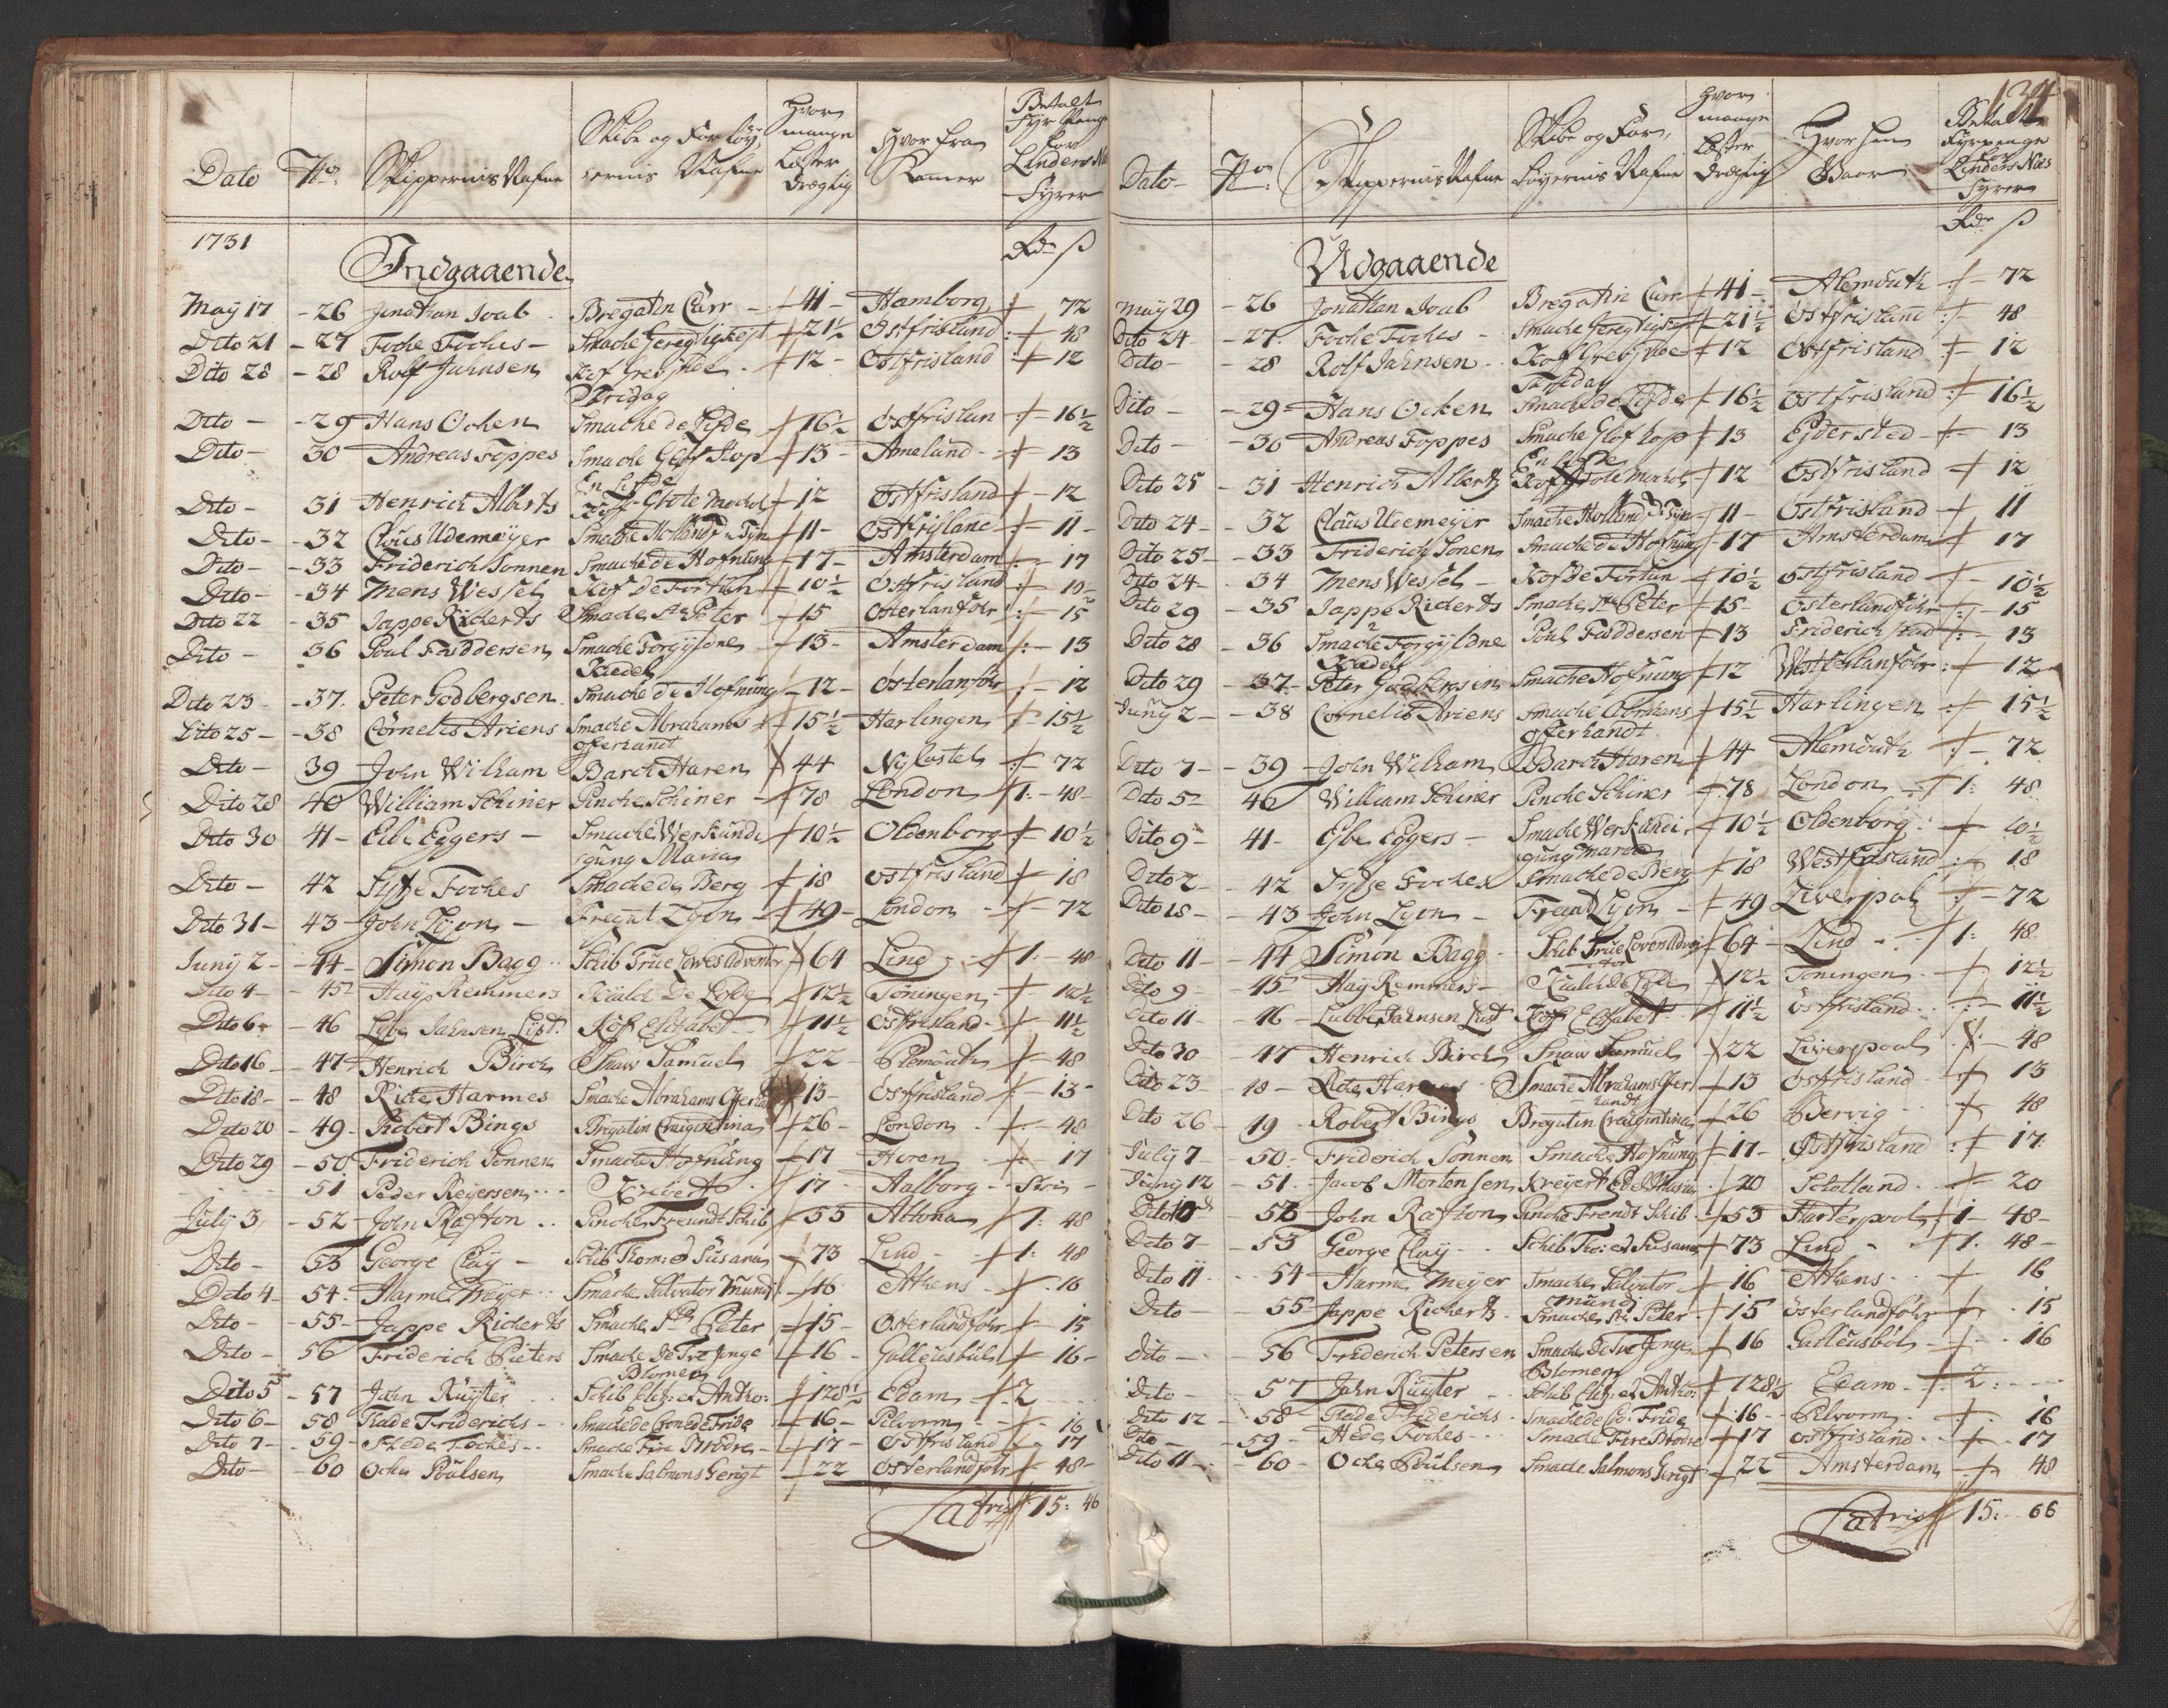 Dato No: Skippernis Nafne Skibe og Far tøy, ternis Nafne Hvor mange Læster Drægtig Hvor fra Kommer Betalt Fyr Penge for Lindens Næs Fyrer
1731 Rdr ß
Indgaaende
May 17 - 26 Jonathan Soab - Bregatin Carr - 41 - Hamborg 72
Dito 21 - 27 Foche Foches - Smache Geregtigkeyt 21½ Ostfrisland : 48
Dito 28 - 28 Rolf Jahnsen Kof Grebshde - 12 - Ostfrisland : 12
Fridag
Dito - - 29 Hans Ochen Smache de Lifde 16½ Ostfrislan : 16½
Dito - 30 Andreas Foppes Smache Glof Hop 13 - Ameland - 13
En Lifde
Dito - 31 Henrich Alberts Koff Grote Machol 12 Ostfrisland - 12
Dito - - 32 Clöus Udemeyer Smache Holländs Tÿn 11 - Ostfrisland - 11 -
Dito - - 33 Friderich Sonnen Smache de Hofnung 17 - Amsterdam : - 17
Dito - - 34 Imens Wessels Kof de Fortun 10½ Ostfrisland : 10½
Dito 22 - 35 Jappe Richerts Smache Ste Peter 15 Osterlanföhr : 15
Dito - 36 Poul Faddersen Smache Forgÿldne 13 - Amsterdam : - 13
Kiedel
Dito 23 - - 37. Peter Godbergsen Smache de Hofnung 12 - Osterlanföhr : - 12
Dito 25 - - 38 Cornelis Ariens Smache Abrahams 15½ Harlingen - 15½
offerhandt
Dito - 39 John Wilham Barck Haren 44 Nylostel : 72
Dito 28 40 William Schiner Pincke Schiner - 78 London 1: - 48 -
Dito 30 41 - Elbe Eggers - Smache Werkundi 10½ Oldenborg 10½
gung Maria
Dito - 42 Syffe Foches Smache de Berg 18 Ostfrisland 18
Dito 31 - 43 - John Lÿon - Fregat Lyon - 49 - London - 72
Juny 2 - - 44 - Simon Bagg - Schib True Loves Adventor 64 Lind - 1: - 48
Dito 4 - - 45 Haÿ Remmers Kuald De Lobe 12½ Töningen - 12½
Dito 6 - 46 Lÿbe Jahnsen Lÿst. Kof Elisabet - 11½ Ostfrisland - 11½
Dito 16 - 47 Henrich Birch Snaw Samuel 22 - Plomouth 48
Dito 18 - - 48 Riche Harmes Smache Abrahams Offerhand 13 - Ostfrisland - 13 -
Dito 20 - 49 - Robert Bings Bregatin Craigentina 26 - London - 48
Dito 29 - 50 Friderich Sonnen Smache Hofnung 17 Horen - 17
51 Peder Reyersen - Kreÿert 17 - Aalborg - - Frie -
July 3 - 52 - John Rafton .. Pincke Freundt Schib 53 Altona 1: 48
Dito - 53 George Cläÿ - Schib Thom: ed Susana 73 Lind - 1: 48
Dito 4 - 54. Harme Meyer .. Smache Salvator Mundi 16 Athens - . 16
Dito - - 55 - Jappe Richerts Smache Ste Peter 15 - Osterlandföhr 15
Dito - 56 Friderich Pieters Smache De Tre Junge 16 - Gallcusbüll 16 -
Blomer
Dito 5 - 57 John Ruÿter - Schib Eliz: ed Antho: 128½ Edam 2 ....
Dito 6 - 58 Flade Friderichs - Smache de Gonede Fride 16 - Pelvorm - 16
Dito 7 - - 59 - Hede Foches - - Smache Fire Brødre - 17 - Ostfrisland 17
Dito - - 60 Ocke Poulsen Smache Salmons Gerigt 22 Osterlandföhr 48 -
Latris 15: 46
124
Dato - No: Skippernis Nafne Skibe og Far, tøyernis Nafne Hvor mange Læster Drægtig Hvor hen Gaar Betalte Fyrpenge for Lynders Næs Fyrer
Rdr ß
Udgaaende
May 29 - 26 Jonathan Soab Bregatin Carr 41 - Alemouth : 72
Dito 24 - 27. Foche Foches - Smache Geregtigkeyt 21½ Ostfrisland : 48
Dito - - 28 Rolf Jahnsen - Kof Grebshoe 12 Ostfrisland : 12
Fridag
Dito - - 29 - Hans Ocken Smache de Lifde 16½ Ostfrisland : 16½
Dito - - 30 Andreas Foppes Smache Glof hop 13 Ejdersted : 13
En Lifde
Dito 25 - 31 Henrich Alberts Koff Grote Machol 12 Ostfrisland 12
Dito 24 - - 32 Claus Uemeÿer Smache Holländs Tÿn 11 - Ostfrisland 11
Dito 25 - - 33 Friderich Sonen Smache de Hofnung 17 Amsterdam 17
Dito 24 - . 34 Imens Wessels - Kof de Fortun 10½ Ostfrisland - 10½
Dito 29 - 35 Jappe Richerts Smache Ste Peter 15 - Osterlandföhr : 15
Dito 28 - 36 Smache Forgÿldne Poul Faddersen 13 Friderichstad : - 13
Kiedel
Dito 29 - 37 - Peter Godbergsen Smache Hofnung 12 Westerlanföhr : 12
Juny 2 - - 38 Cornelis Ariens Smache Abrahams 15½ Harlingen : 15½
offerhandt
Dito 7 - - 39 - John Wilham Barck Haren 44 Alemouth : - 72
Dito 5 - 40 William Schiner Pincke Schiner 78 London 1: 48
Dito 9 - 41 - Elbe Eggers - Smache Werkundi 10½ Oldenborg : 10½
gung Maria
Dito 2 - - 42 Syffe Foches Smache de Berg 18 Westfrisland 18
Dito 18 - - 43 John Lyon - Fregat Lyon - 49 Liverpol : - 72
Dito 11 - 44 Simon Bagg - Schib True Loves Adven 64 - Lind - - 1: 48
tor
Dito 9 - - 45 Haÿ Remmers - Kuald de Lobe 12½ Töningen - 12½
Dito 11 - 46 - Lubbe Jahnsen Lust Kof Elisabet 11½ Ostfrisland . : 11½
Dito 30 - 47 Henrich Birch Snaw Samuel 22 Liverpool . : 48
Dito 23 - 48 - Riche Harmes - Smache Abrahams Offer 13 Ostfrisland - 13
handt
Dito 26 - 49 Robert Bings Bregatin Craigentina 26 Bervig - 48
July 7 - 50 - Friderich Sonnen Smache Hofnung 17 - Ostfrisland : 17:
Juny 12 - 51. Jacob Mortensen Kreÿert 20 Schotland - 20
Dito 10 - 52 John Rafthon Pincke Frendt Schib 53 Harterpool 1 - 48 -
Dito 7 - 53 George Claÿ - Schib Tho: ed Susana 73 Lind - 1: 48 -
Dito 11 . . 54 Harme Meÿer Smache Salvator 16 Athens - 16
mundi
Dito - - 55 Jappe Richerts - Smache Ste Peter 15 Osterlandföhr . 15
Dito - - 56 Friderich Petersen Smache De Tre Junge 16 Gallcusböl - . 16
Blomer
Dito - 57 Jahn Ruÿter - Schib Eliz: ed Antho: 128½ Edam - 2: . . .
Dito 12 - 58 - Flade Friderichs - Smache de Go: Fride 16 - Pelvorm - 16
Dito - - 59 - Hede Foches - - Smache Fire Brødre 17 Ostfrisland - . 17
Dito 11 - - 60 - Ocke Poulsen Smache Salmons Gerigt 22 Amsterdam - 48
Latris 15: 66